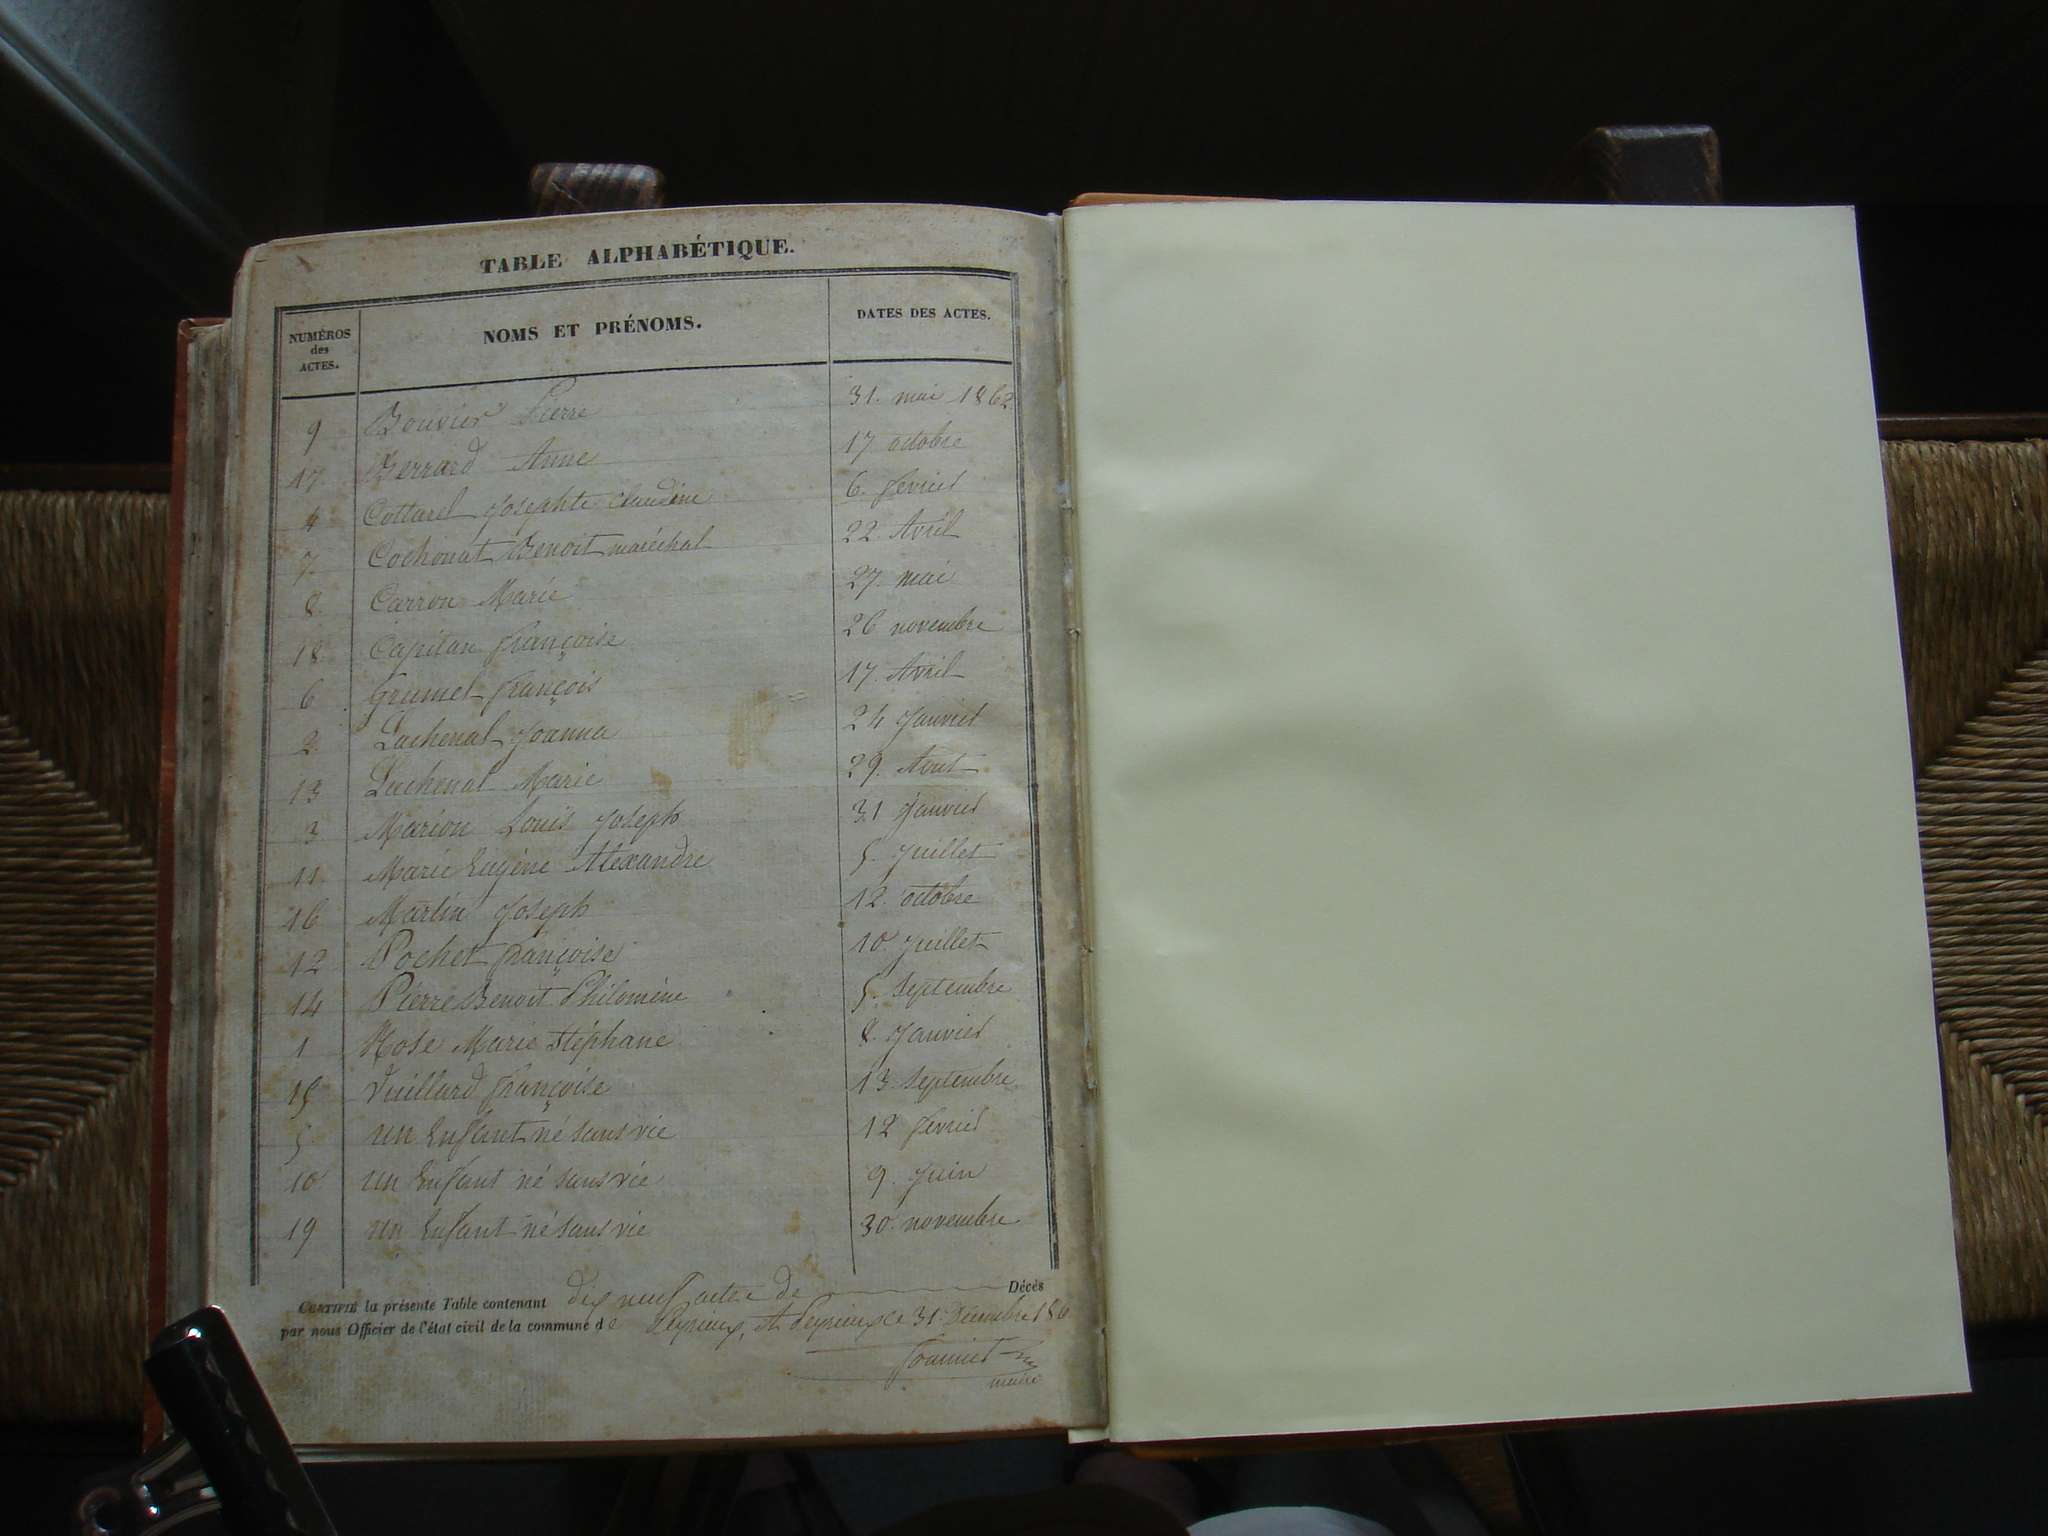 TABLE ALPHABÉTIQUE.
NUMÉROS des ACTES. NOMS ET PRÉNOMS. DATES DES ACTES.
9 Bouvier Pierre 31. mai 1862.
17. Berrard Anne 17 octobre
4 Cottarel Josephte Claudine 6. février
7. Cochonat Benoit maréchal 22. Avril
8. Carron Marie 27. mai
18. Capitan françoise 26 novembre
6 Grumel françois 17. Avril
2. Lachenal Joanna 24 Janvier
13 Lachenal Marie 29. Aout
3 Marion Louis Joseph 31 Janvier
11. Marie Eugène Alexandre 5. Juillet
16 Martin Joseph 12. octobre
12 Pochet françoise 10. Juillet
14 Pierre Benoit Philomène 5. septembre
1 Rose Marie Stéphane 8. Janvier
15 Vuillard françoise 13. septembre
5. un Enfant né sans vie 12 février
10 un Enfant né sans vie 9. Juin
19 un Enfant né sans vie 30. novembre
CERTIFIÉ la présente Table contenant dix neuf actes de Décès
par nous Officier de l'état civil de la commune de Peyrieux, A Peyrieux ce 31. Décembre 186
maire